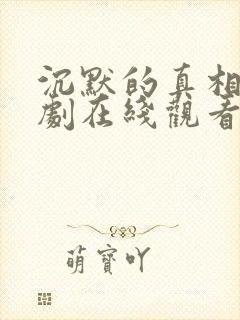 沉默的真相
劇在綫觀看
萌寶吖